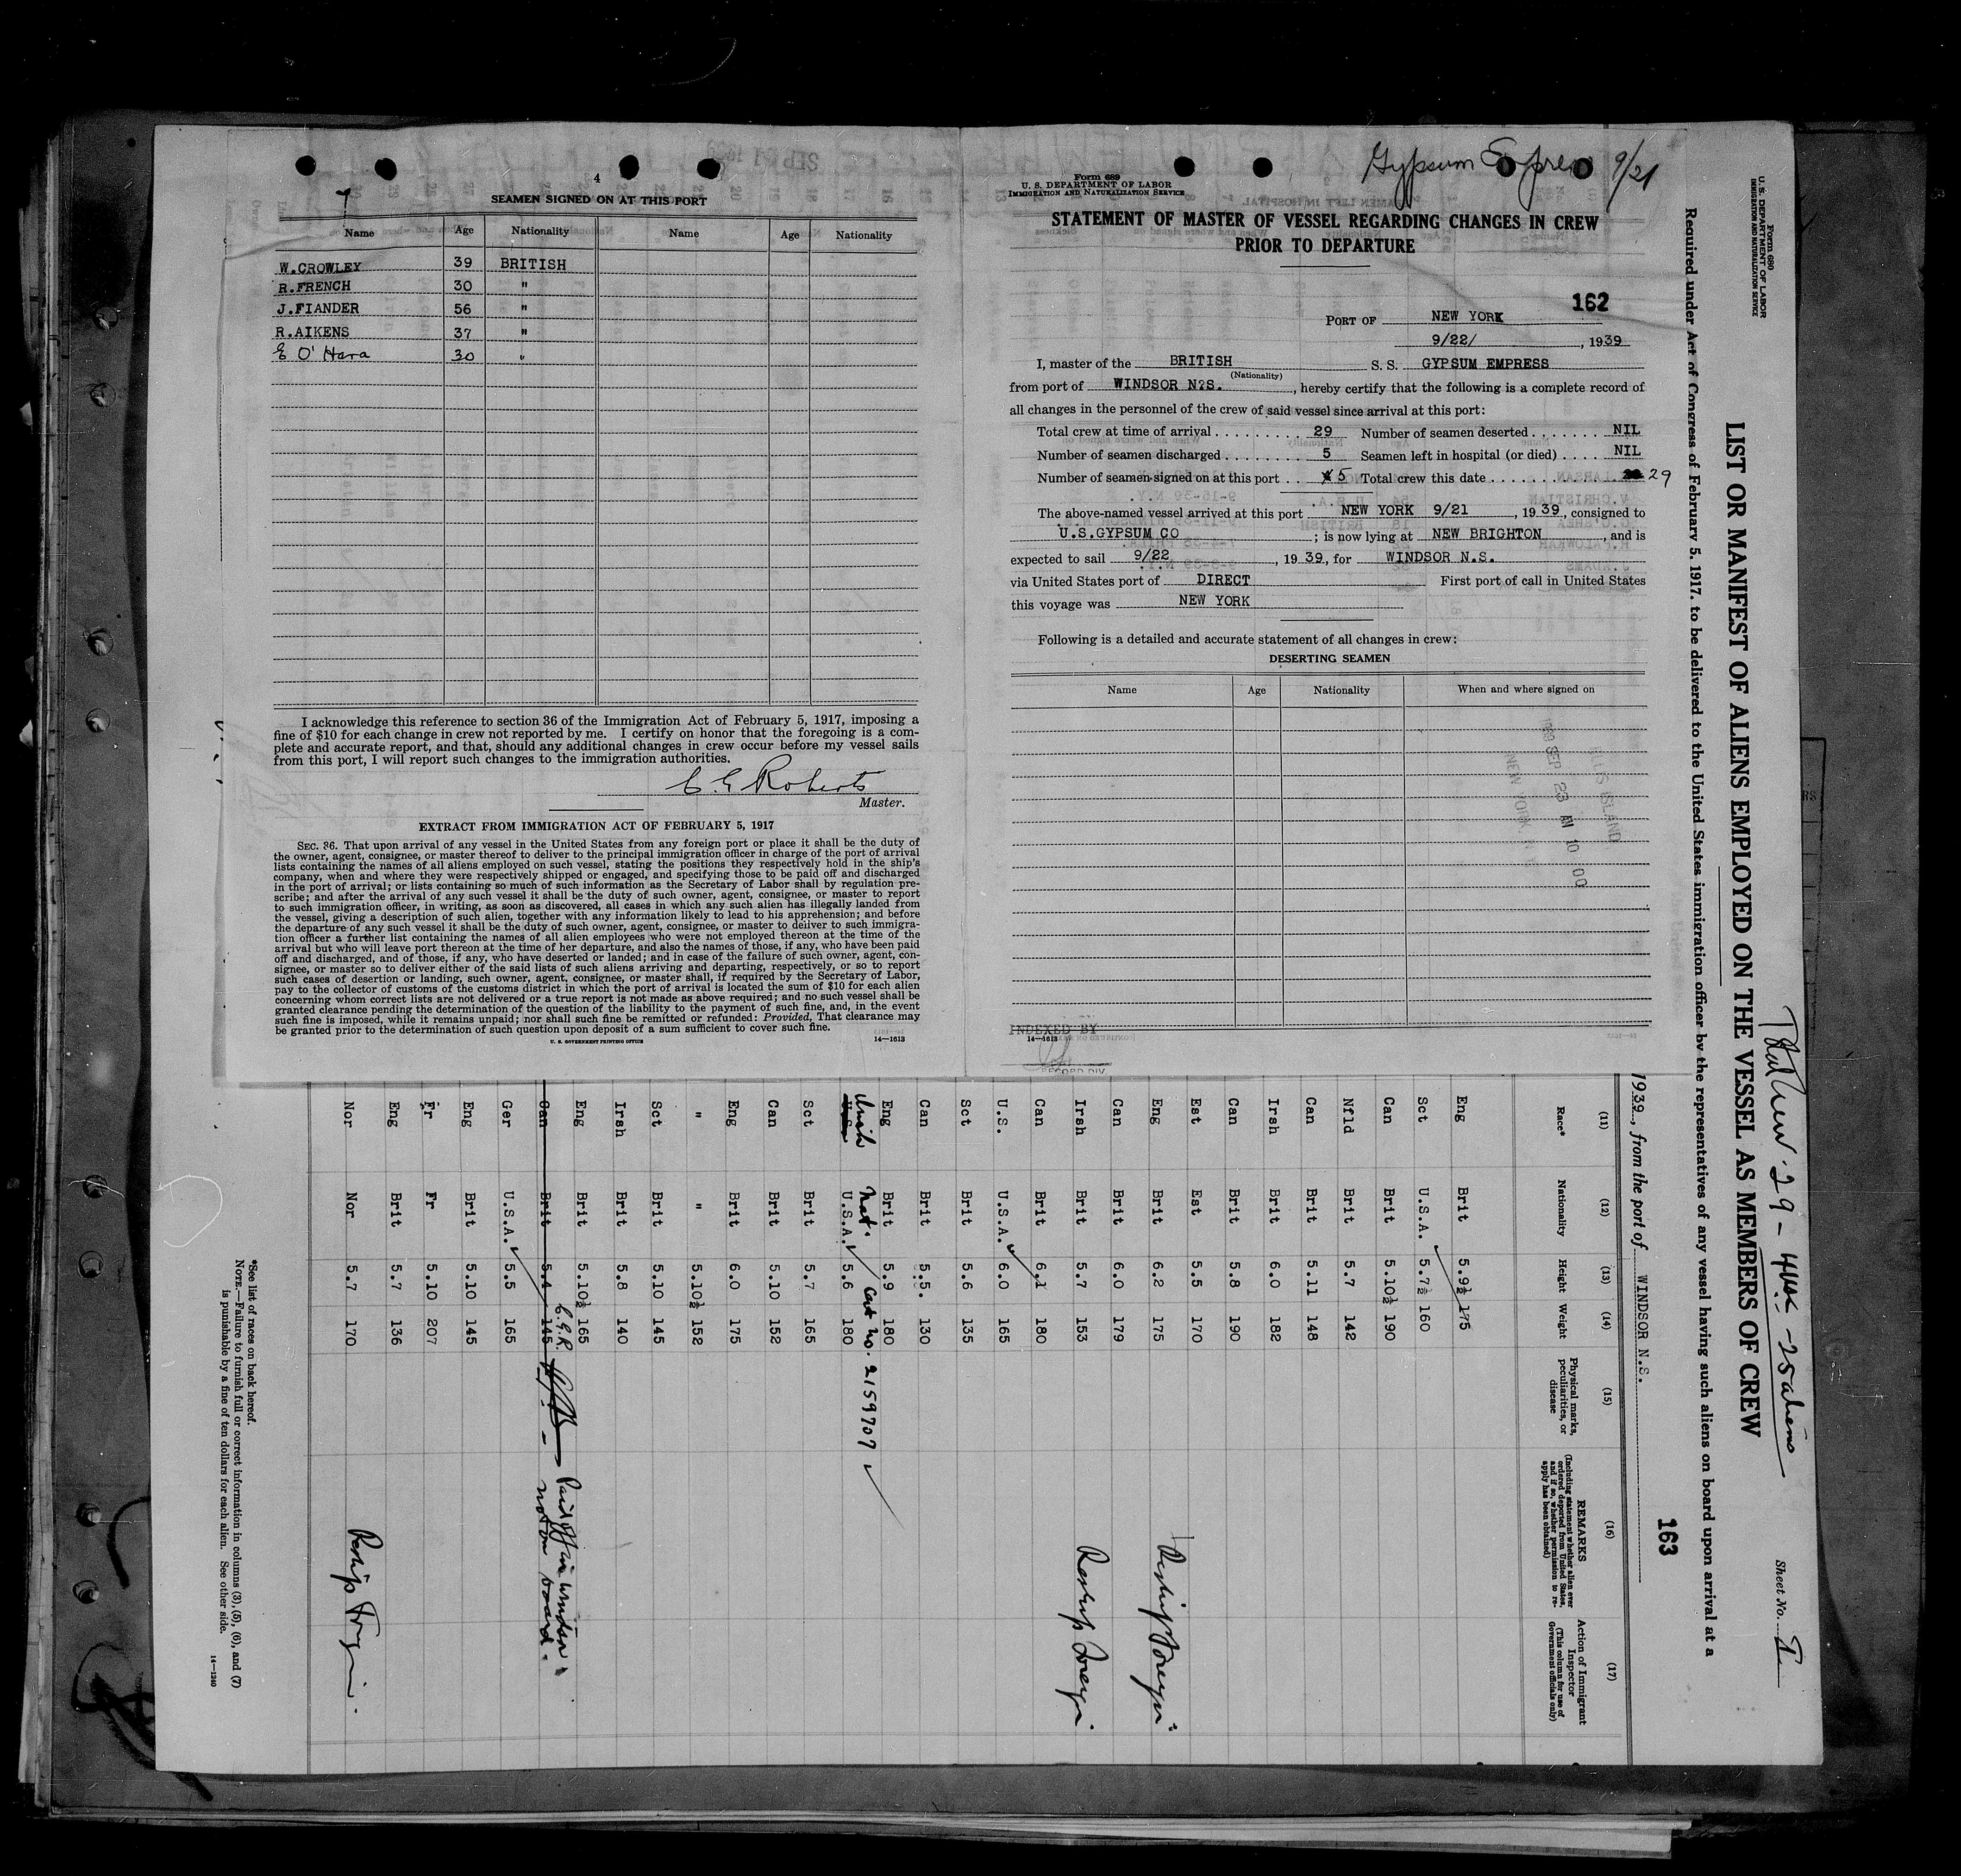 4
SEAMEN SIGNED ON AT THIS PORT
Name Age Nationality Name Age Nationality
W.CROWLEY 39 BRITISH
R.FRENCH 30 "
J.FIANDER 56 "
R.AIKENS 37 "
E O'Hara 30 "
I acknowledge this reference to section 36 of the Immigration Act of February 5, 1917, imposing a
fine of $10 for each change in crew not reported by me. I certify on honor that the foregoing is a com-
plete and accurate report, and that, should any additional changes in crew occur before my vessel sails
from this port, I will report such changes to the immigration authorities.
C. E Roberts
Master.
EXTRACT FROM IMMIGRATION ACT OF FEBRUARY 5, 1917
SEC. 36. That upon arrival of any vessel in the United States from any foreign port or place it shall be the duty of
the owner, agent, consignee, or master thereof to deliver to the principal immigration officer in charge of the port of arrival
lists containing the names of all aliens employed on such vessel, stating the positions they respectively hold in the ship's
company, when and where they were respectively shipped or engaged, and specifying those to be paid off and discharged
in the port of arrival; or lists containing so much of such information as the Secretary of Labor shall by regulation pre-
scribe; and after the arrival of any such vessel it shall be the duty of such owner, agent, consignee, or master to report
to such immigration officer, in writing, as soon as discovered, all cases in which any such alien has illegally landed from
the vessel, giving a description of such alien, together with any information likely to lead to his apprehension; and before
the departure of any such vessel it shall be the duty of such owner, agent, consignee, or master to deliver to such immigra-
tion officer a further list containing the names of all alien employees who were not employed thereon at the time of the
arrival but who will leave port thereon at the time of her departure, and also the names of those, if any, who have been paid
off and discharged, and of those, if any, who have deserted or landed; and in case of the failure of such owner, agent, con-
signee, or master so to deliver either of the said lists of such aliens arriving and departing, respectively, or so to report
such cases of desertion or landing, such owner, agent, consignee, or master shall, if required by the Secretary of Labor,
pay to the collector of customs of the customs district in which the port of arrival is located the sum of $10 for each alien
concerning whom correct lists are not delivered or a true report is not made as above required; and no such vessel shall be
granted clearance pending the determination of the question of the liability to the payment of such fine, and, in the event
such fine is imposed, while it remains unpaid; nor shall such fine be remitted or refunded: Provided, That clearance may
be granted prior to the determination of such question upon deposit of a sum sufficient to cover such fine.
U. S. GOVERNMENT PRINTING OFFICE 14—1613
Gypsum Express 9/21
Form 689
U. S. DEPARTMENT OF LABOR
IMMIGRATION AND NATURALIZATION SERVICE
STATEMENT OF MASTER OF VESSEL REGARDING CHANGES IN CREW
PRIOR TO DEPARTURE
162
PORT OF NEW YORK
9/22/, 1939
I, master of the BRITISH S. S. GYPSUM EMPRESS
(Nationality)
from port of WINDSOR N?S., hereby certify that the following is a complete record of
all changes in the personnel of the crew of said vessel since arrival at this port:
Total crew at time of arrival 29 Number of seamen deserted NIL
Number of seamen discharged 5 Seamen left in hospital (or died) NIL
Number of seamen signed on at this port 5 Total crew this date 29
The above-named vessel arrived at this port NEW YORK 9/21, 1939, consigned to
U.S.GYPSUM CO; is now lying at NEW BRIGHTON, and is
expected to sail 9/22, 1939, for WINDSOR N.S.
via United States port of DIRECT First port of call in United States
this voyage was NEW YORK
Following is a detailed and accurate statement of all changes in crew:
DESERTING SEAMEN
Name Age Nationality When and where signed on
ELLIS ISLAND
1939 SEP 23 AM 10 00
NEW YORK
INDEXED BY
14—1613
RECORD DIV.
Form 680
U. S. DEPARTMENT OF LABOR
IMMIGRATION AND NATURALIZATION SERVICE
Sheet No. I
LIST OR MANIFEST OF ALIENS EMPLOYED ON THE VESSEL AS MEMBERS OF CREW
Required under Act of Congress of February 5, 1917, to be delivered to the United States immigration officer by the representatives of any vessel having such aliens on board upon arrival at a
163
1939, from the port of WINDSOR N.S.
(11) (12) (13) (14) (15) (16) (17)
Race* Nationality Height Weight Physical marks, peculiarities, or disease REMARKS (Including statement whether alien ever ordered deported from United States, and if so, whether permission to re-apply has been obtained) Action of Immigrant Inspector (This column for use of Government officials only)
Eng Brit 5.9½ 175
Sct U.S.A. 5.7½ 160
Can Brit 5.10½ 190
Nfld Brit 5.7 142
Can Brit 5.11 148
Irsh Brit 6.0 182
Can Brit 5.8 190
Est Est 5.5 170
Eng Brit 6.2 175 Reship Foreign.
Can Brit 6.0 179
Irsh Brit 5.7 153 Reship Foreign.
Can Brit 6.1 180
U.S. U.S.A. 6.0 165
Sct Brit 5.6 135
Can Brit 5.5. 130
Eng Brit 5.9 180
U.S.A. 5.6 180 Nat. Cert No. 2159707
Sct Brit 5.7 165
Can Brit 5.10 152
Eng Brit 6.0 175
" " 5.10½ 152
Sct Brit 5.10 145
Irsh Brit 5.8 140
Eng Brit 5.10½ 165
Can Brit 5.4 145 C.E.R. Paid off in Windsor. not on board.
Ger U.S.A. 5.5 165
Eng Brit 5.10 145
Fr Fr 5.10 207
Eng Brit 5.7 136
Nor Nor 5.7 170 Reship Foreign.
*See list of races on back hereof.
NOTE.—Failure to furnish full or correct information in columns (3), (5), (6), and (7)
is punishable by a fine of ten dollars for each alien. See other side.
14—1240